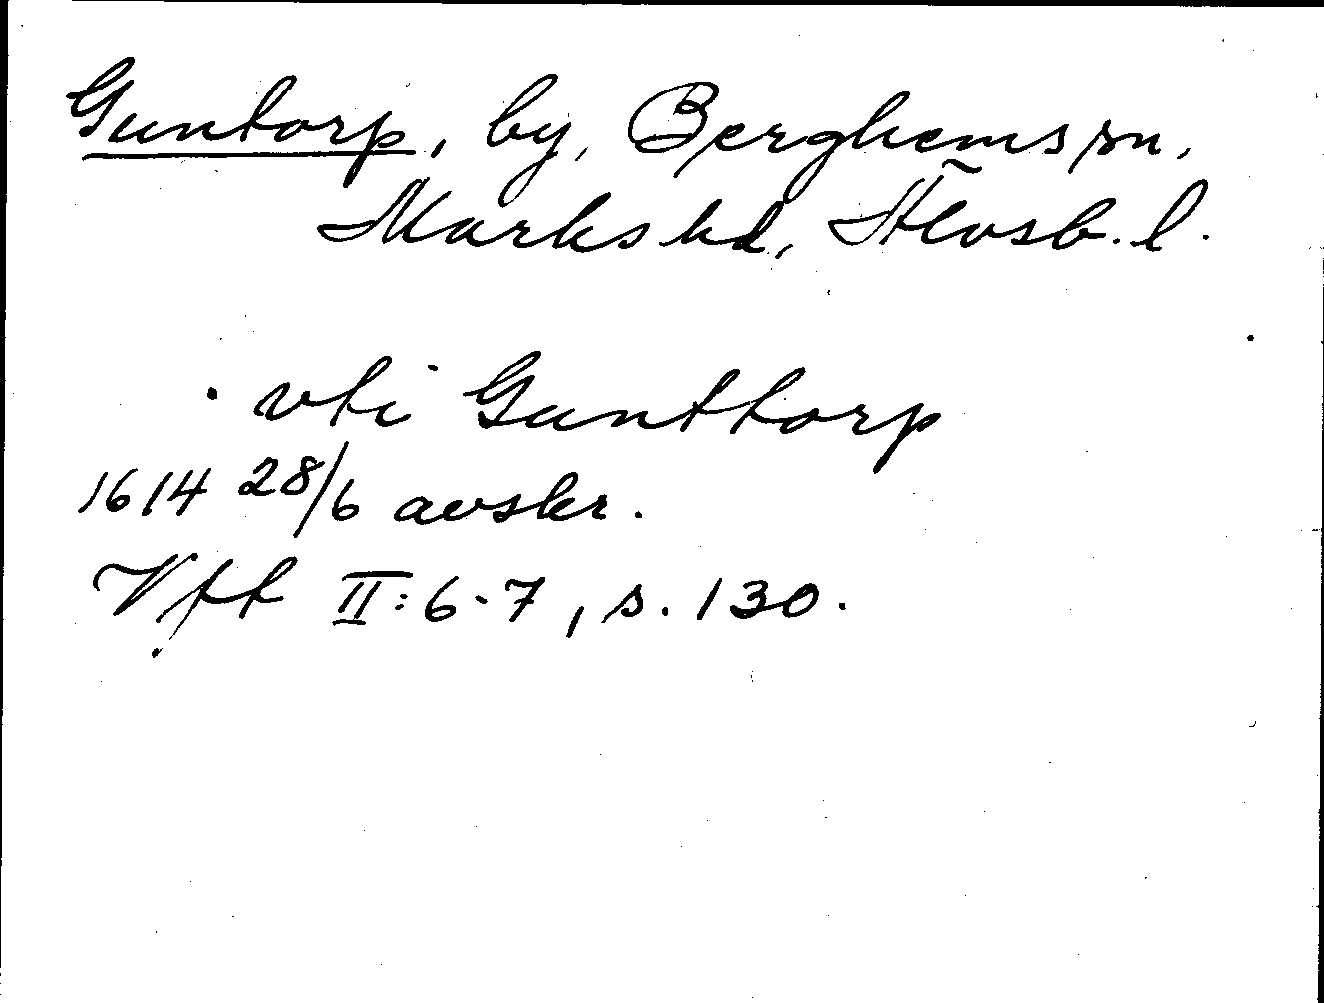 Guntorp, by, Berghems sn,
Marks hd, Älvsb. l.
vti Gunttorp
1614 28/6 avskr.
Vft II:6-7, s. 130.